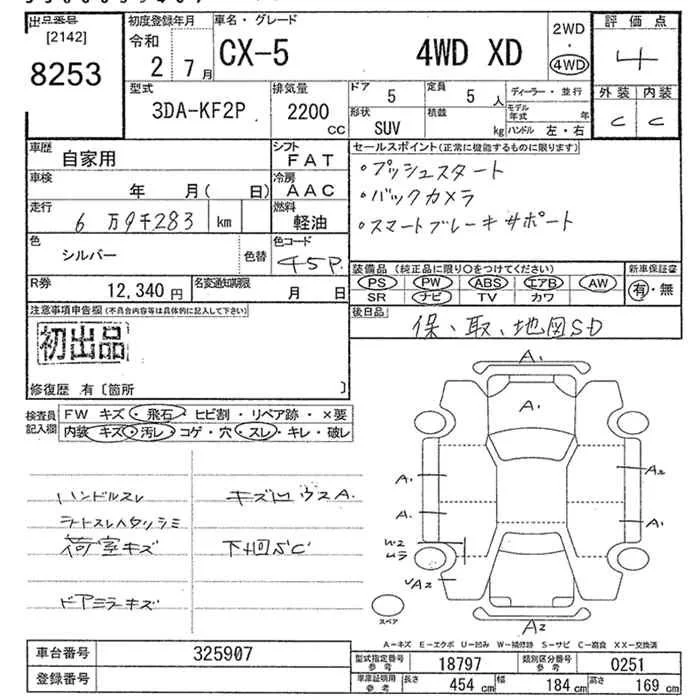 出品番号 初度登録年月 車名・グレード 2WD 評価点
[2142] 令和 CX-5 4WD XD ・ 4
8253 2年 7月 4WD 外装 内装
型式 排気量 ドア 定員 ディーラー・並行 C C
3DA-KF2P 2200 CC 5 5人 モデル年式 年
形状 SUV 積載 kg ハンドル 左・右
車歴 自家用 シフト FAT セールスポイント(正常に機能するものに限ります)
車検 年 月( 日) 冷房 AAC ・プッシュスタート
走行 6万9千283 km 燃料 軽油 ・バックカメラ
色 シルバー 色替 色コード 45P. ・スマートブレーキサポート
R券 12,340円 名変通知期限 月 日 装備品(純正品に限り○をつけてください) 新車保証書
PS PW ABS エアB AW 有・無
SR ナビ TV カワ
注意事項申告欄(不具合内容等は具体的に記入して下さい) 後日品 保、取、地図SD
初出品
修復歴 有〔箇所 〕
検査員記入欄 FW キズ・飛石・ヒビ割・リペア跡・×要
内装 キズ・汚レ・コゲ・穴・スレ・キレ・破レ
A1
A1
A1 A2
A1 A1
A2
A2
ハンドルスレ キズ凹
荷室キズ 下廻
ドアミラーキズ
スペア
A-キズ E-エクボ U-凹み W-補修跡 S-サビ C-腐食 XX-交換済
車台番号 325907 型式指定番号参考 18797 類別区分番号参考 0251
登録番号 車庫証明用参考 長さ 454 cm 幅 184 cm 高さ 169 cm